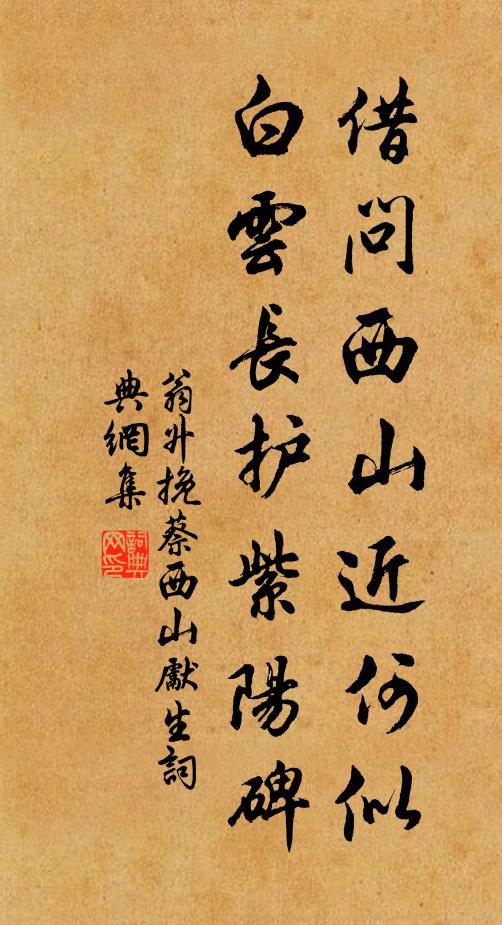 借問西山近何似
白雲長护紫陽碑
翁升挽蔡西山獻生詞
典網集
詞典網印